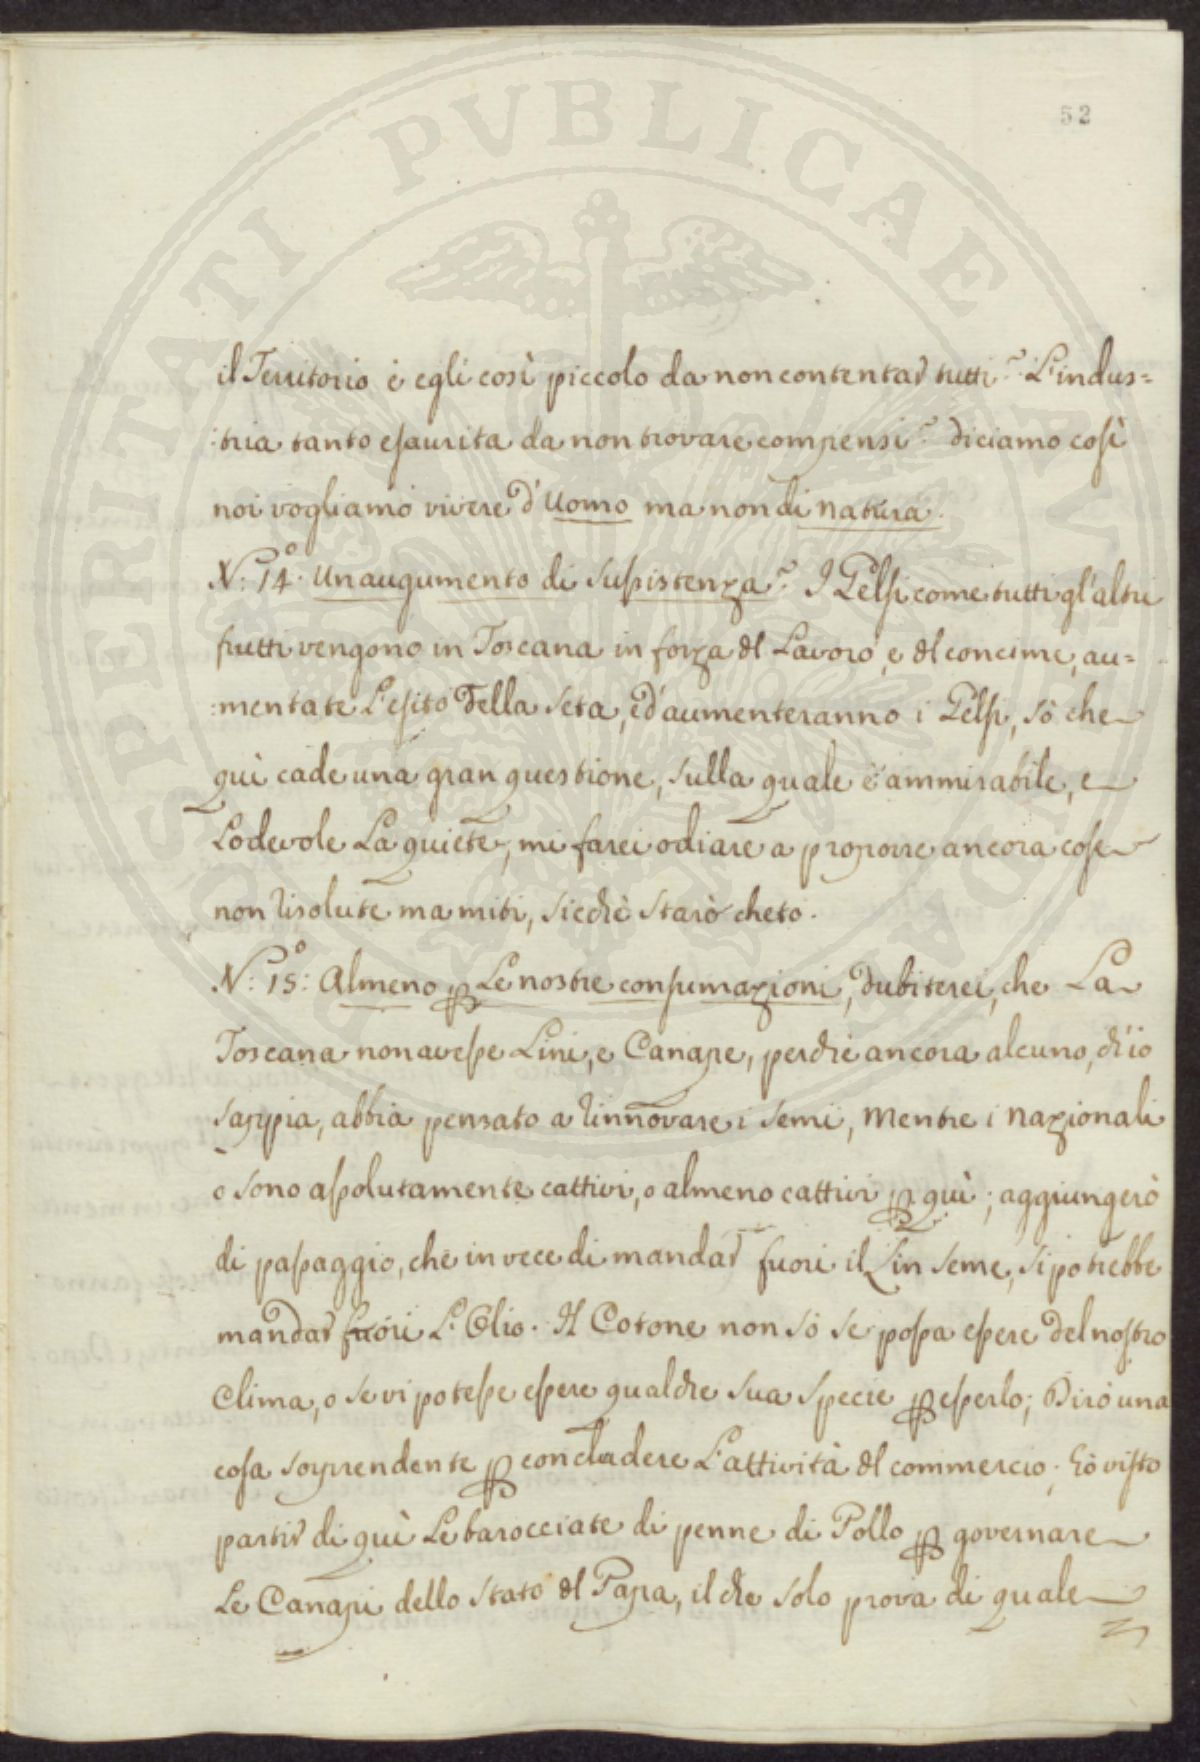 PROSPERITATI PVBLICAE AVGENDAE
52
il Territorio è egli così piccolo da non contentar tutti? L'indus=
:tria tanto esaurita da non trovare compensi? diciamo così
noi vogliamo vivere d'Uomo ma non di natura.
N: 14.º Un augumento di sussistenza? I Gelsi come tutti gl'altri
frutti vengono in Toscana in forza del Lavoro, e del concime, au=
:mentate L'esito della seta, ed aumenteranno i Gelsi, sò che
quì cade una gran questione, sulla quale è ammirabile, e
Lodevole La quiete, mi farei odiare a proporre ancora cose
non risolute ma miti, sicchè starò cheto.
N: 15º: Almeno p Le nostre consumazioni, dubiterei, che La
Toscana non avesse Lini, e Canape, perchè ancora alcuno, ch'io
sappia, abbia pensato a rinnovare i semi, mentre i nazionali
o sono assolutamente cattivi, o almeno cattivi p quì; aggiungerò
di passaggio, che in vece di mandar fuori il Lin seme, si potrebbe
mandar fuori L'Olio. Il Cotone non sò se possa essere del nostro
Clima, o se vi potesse essere qualche sua specie p esserlo; Dirò una
cosa sorprendente p concludere L'attività del commercio. hò visto
partir di quì Le barocciate di penne di Pollo p governare
Le Canapi dello stato del Papa, il che solo prova di quale